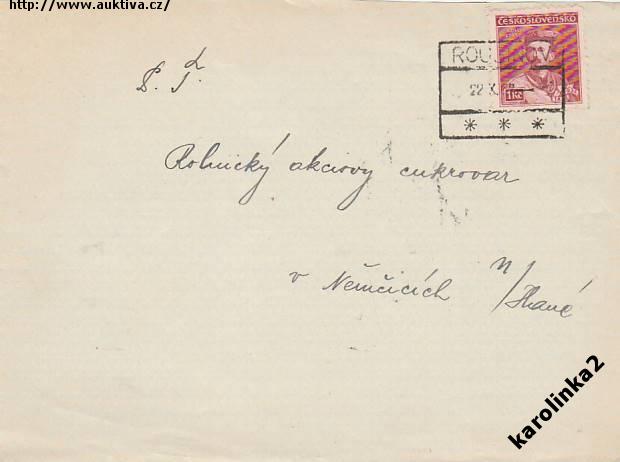 http://www.auktiva.cz/
ČESKOSLOVENSKO
22 X
1 Kč
* * *
P. T.
Rolnický akciový cukrovar
v Němčicích n/Hané
karolinka2